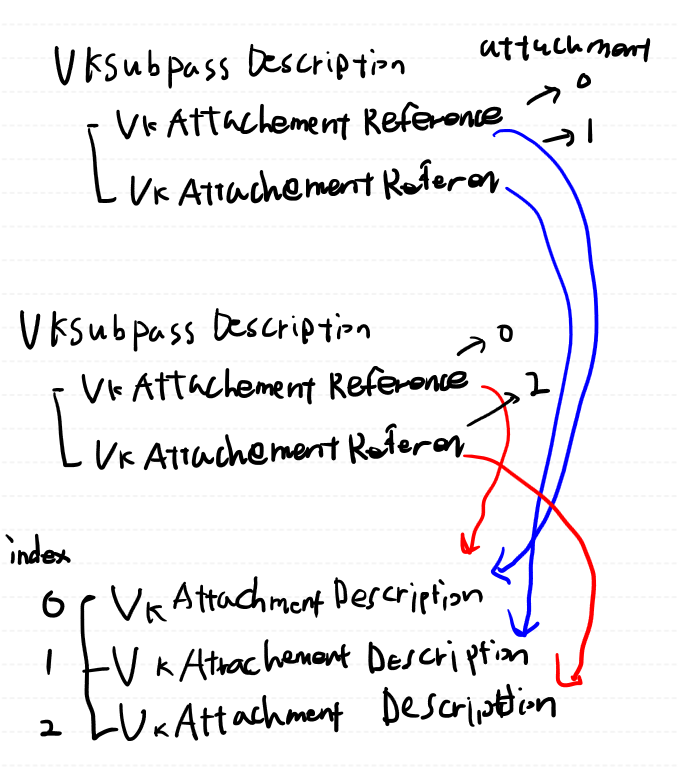 VkSubpass Description attachment
VK Attachement Reference → 0
→ 1
VK Attachement Referen
VKSubpass Description
→ 0
VK Attachement Reference
2
VK Attachement Referen
index
0 VK Attachment Description
1 VK Attachement Description
2 VK Attachment Description